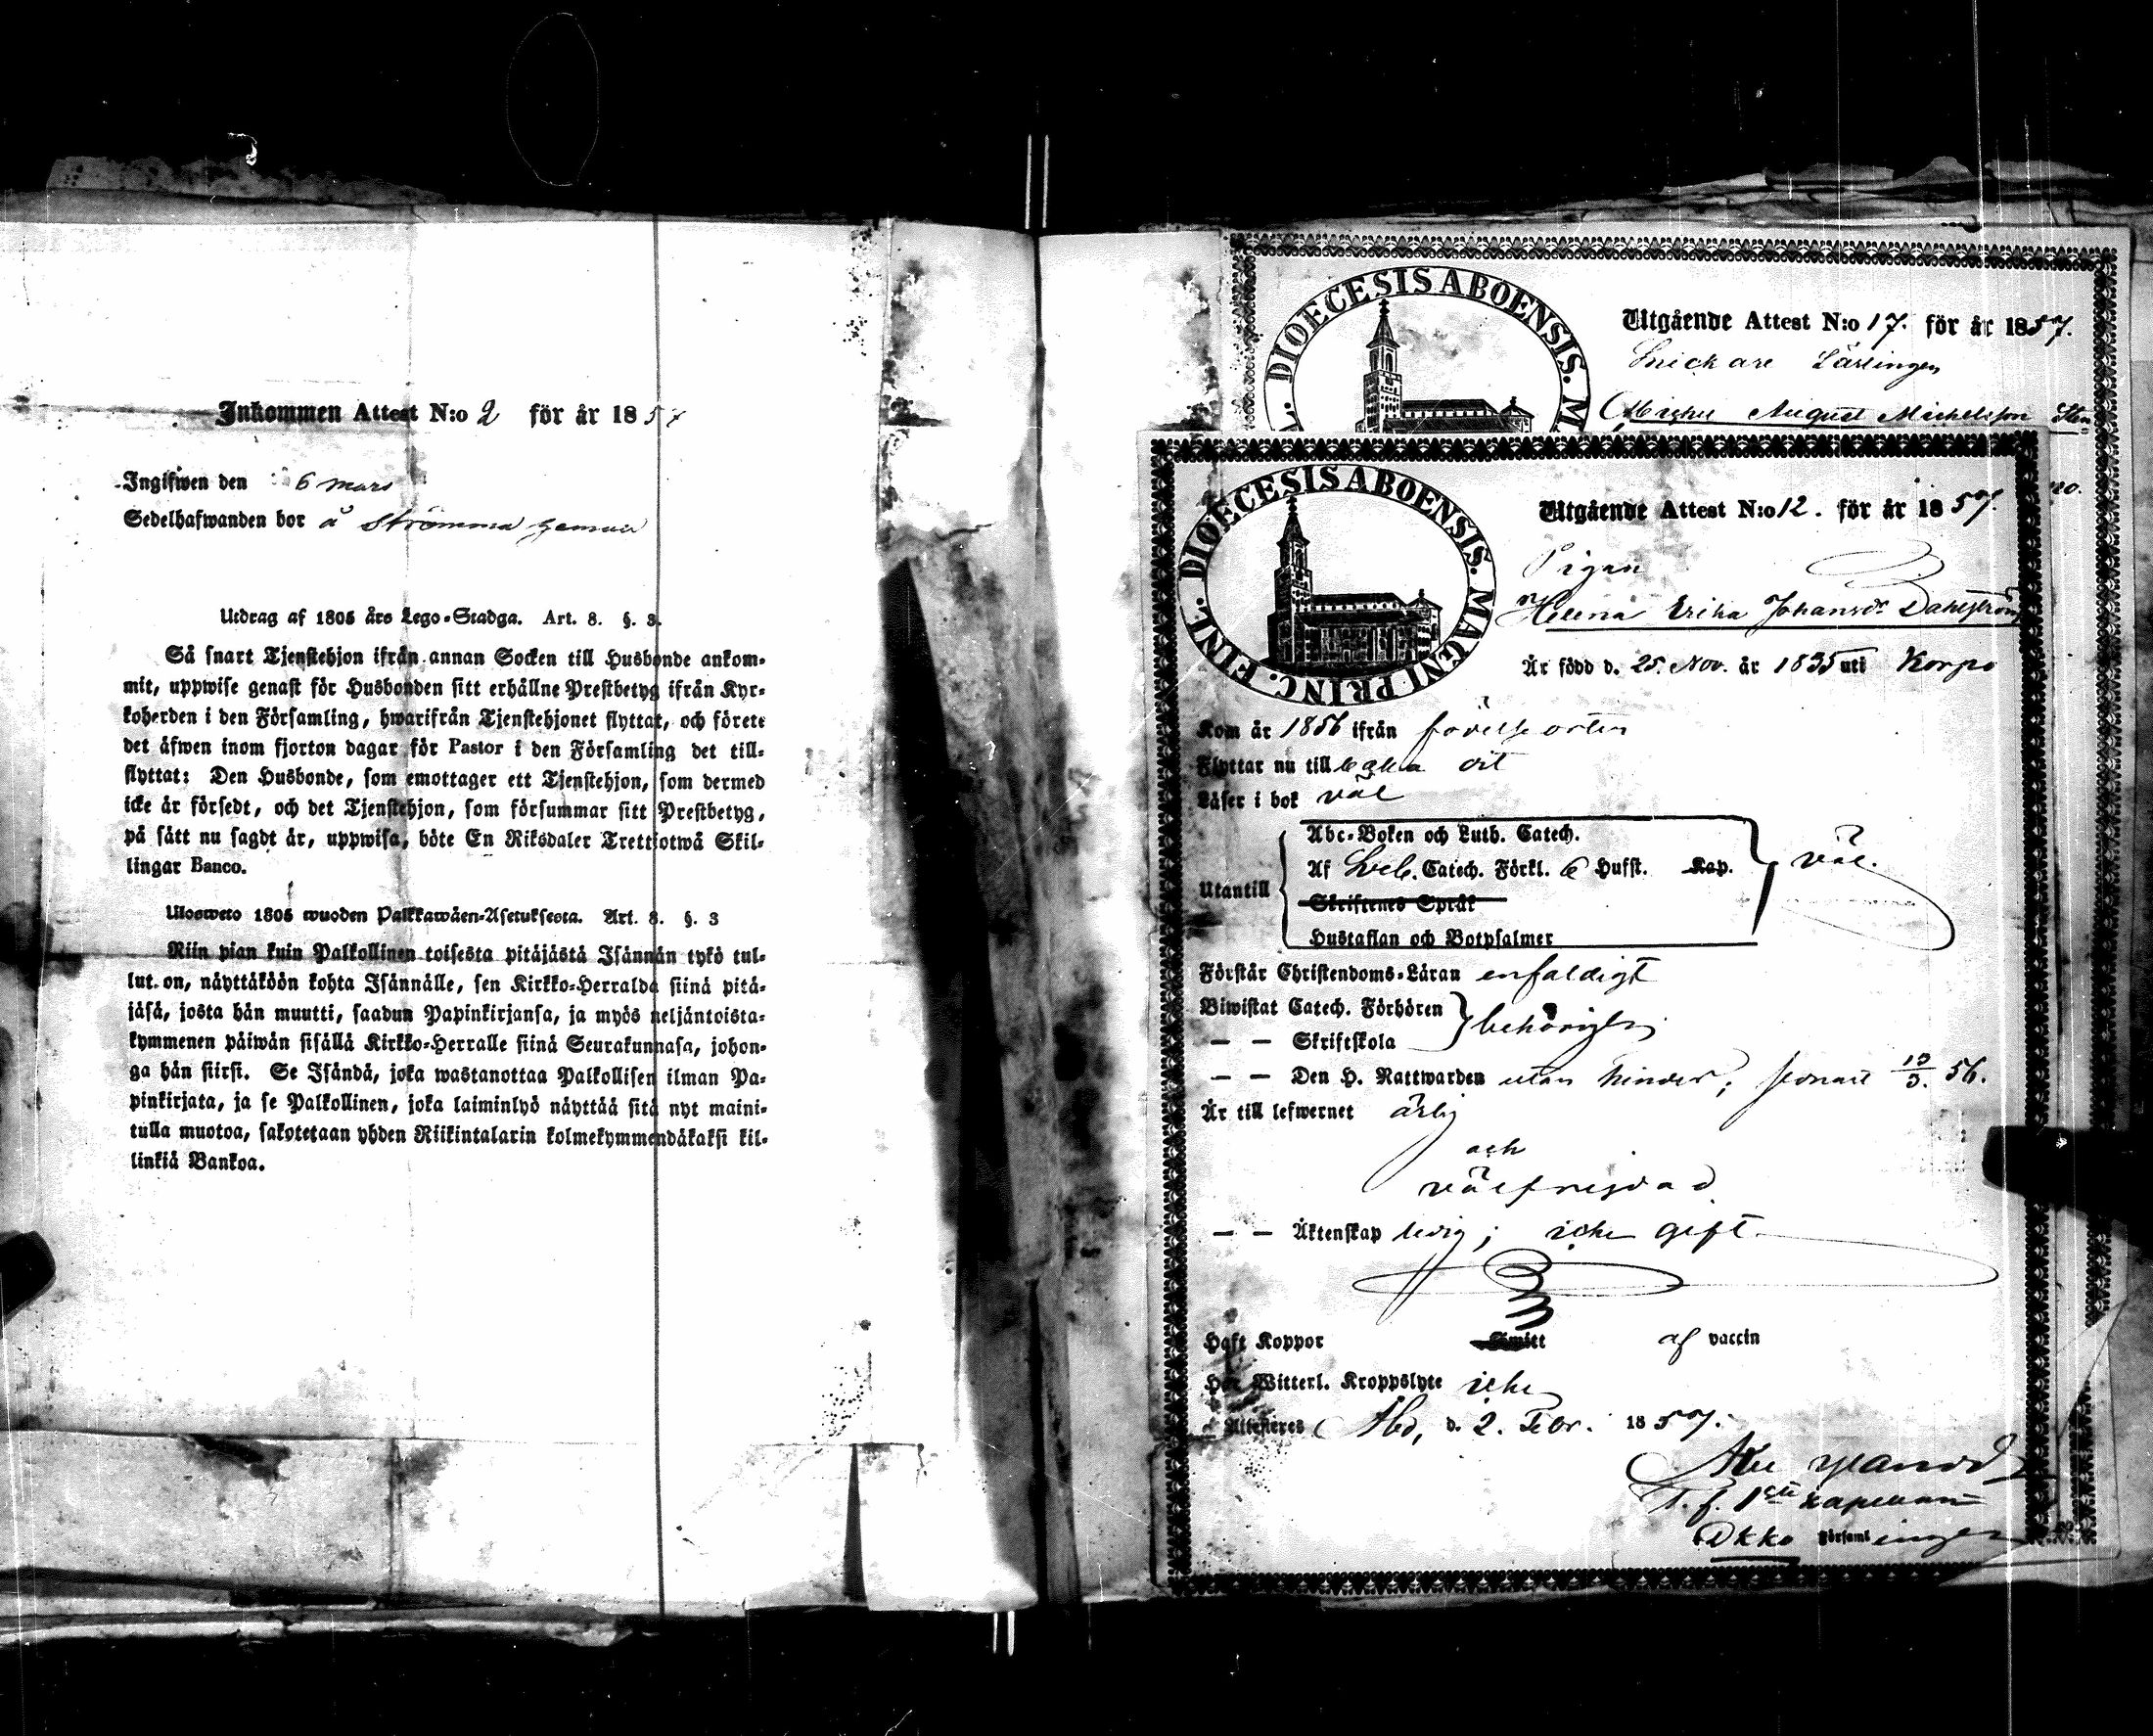 Inkommen Attest N:o 2 för år 185
Ingifwen den 6 mars
Sedelhafwanden bor å Strömma
Utdrag af 1805 års Lego-Stadga. Art. 8. §. 3.
Så snart Tjenstehjon ifrån annan Socken till Husbonde ankom-
mit, uppwise genast för Husbonden sitt erhållne Prestbetyg ifrån Kyr-
koherden i den Församling, hwarifrån Tjenstehjonet flyttat, och förete
det äfwen inom fjorton dagar för Pastor i den Församling det till-
flyttat: Den Husbonde, som emottager ett Tjenstehjon, som dermed
icke är försedt, och det Tjenstehjon, som försummar sitt Prestbetyg,
på sätt nu sagdt är, uppwisa, böte En Riksdaler Trettiotwå Skil-
lingar Banco.
Ulosweto 1805 wuoden Palkkawäen-Asetuksesta. Art. 8. §. 3
Niin pian kuin Palkollinen toisesta pitäjästä Isännän tykö tul-
lut on, näyttäköön kohta Isännälle, sen Kirkko-Herralda siinä pitä-
jäsä, josta hän muutti, saadun Papinkirjansa, ja myös neljäntoista-
kymmenen päiwän sisällä Kirkko-Herralle siinä Seurakunnasa, johon-
ga hän siirsi. Se Isändä, joka wastanottaa Palkollisen ilman Pa-
pinkirjata, ja se Palkollinen, joka laiminlyö näyttää sitä nyt maini-
tulla muotoa, sakotetaan yhden Riikintalarin kolmekymmendäkaksi kil-
linkiä Bankoa.
DIOECESIS ABOENSIS. M
Utgående Attest N:o 17. för år 1857.
Snickare Lärlingen
August Michelsson
DIOECESIS ABOENSIS. MAGNI PRINC. FINL.
Utgående Attest N:o 12. för år 1857.
Pigan
Helena Erika Johansdr Dahlström
Är född d. 25. Nov. år 1835 uti Korpo
Kom år 1856 ifrån födelseorten
Flyttar nu tillbaka dit
Läser i bok väl
Utantill
Abc-Boken och Luth. Catech.
Af Sveb. Catech. Förkl. 6 Hufst. Kap.
Skriftenes Språk
Hustaflan och Botpsalmer
väl.
Förstår Christendoms-Läran enfaldigt
Biwistat Catech. Förhören
— — Skriftskola
behörigen
— — Den H. Nattwarden utan hinder; senast 56.
Är till lefwernet ärlig
och
välfrejdad
— — Äktenskap ledig; icke gift
Haft Koppor Smitt af vaccin
Har Witterl. Kroppslyte icke
Attesteres Åbo, d. 2. Febr. 1857.
T. f. 1ste Kapellan
Församlingen